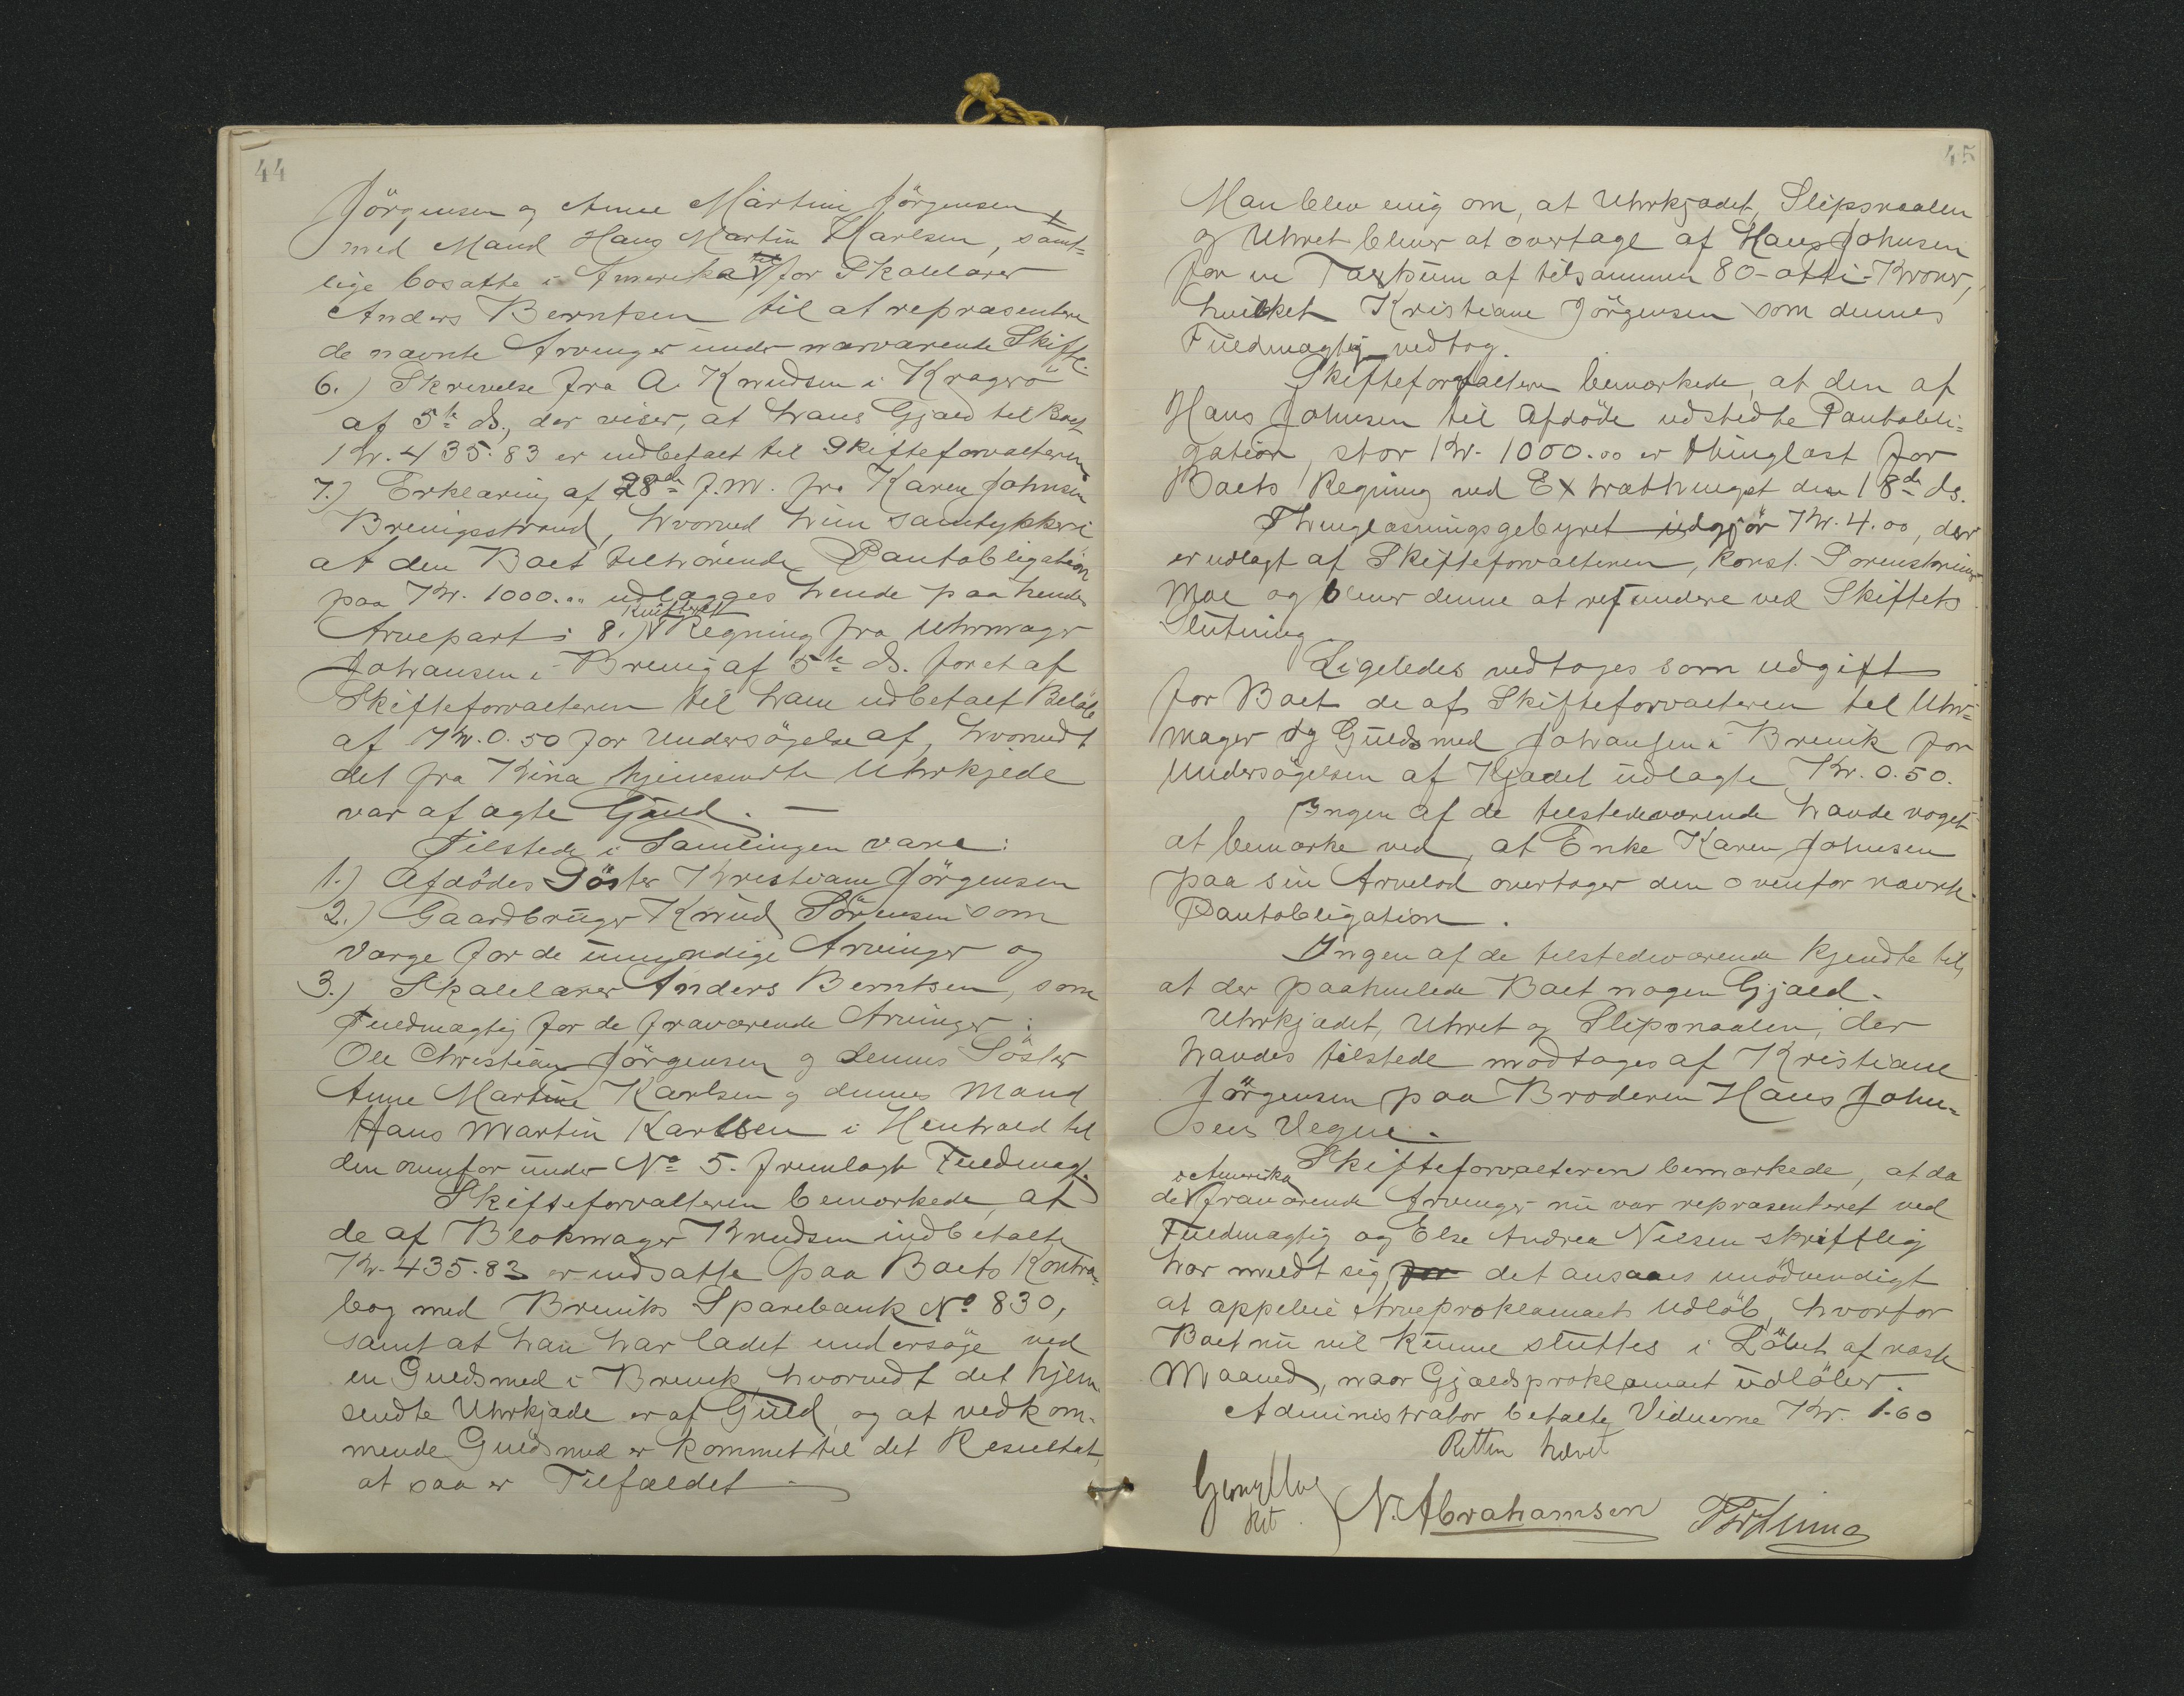 44
Jörgensen og Anne Martine Jörgensen
med Mand Hans Martin Karlsen, samt-
lige bosatte i Amerika for Skolelærer
Anders Berntsen til at repræsentere
de nævnte Arvinger under nærværende Skifte.
6.) Skrivelse fra A. Knudsen i Kragerö
af 5te ds., der viser, at hans Gjæld til Boet
Kr. 435.83 er indbetalt til Skifteforvalteren
7.) Erklæring af 28de f.M. fra Karen Johnsen
Brevigsstrand, hvorved hun samtykker i
at den Boet tilhörende Pantobligation
paa Kr. 1000.00 udlægges hende paa hendes
Arvepart: 8.) Kvitteret Regning fra Uhrmager
Johansen i Brevig af 5te ds. for et af
Skifteforvalteren til ham udbetalt Belöb
af Kr. 0.50 for Undersögelse af, hvorvidt
det fra Kina hjemsendte Uhrkjede
var af ægte Guld. —
Tilstede i Samlingen vare:
1.) Afdödes Söster Kristiane Jörgensen
2.) Gaardbruger Knud Sörensen som
Værge for de umyndige Arvinger og
3.) Skolelærer Anders Berntsen, som
Fuldmægtig for de fraværende Arvinger:
Ole Christian Jörgensen og dennes Söster
Anne Martine Karlsen og dennes Mand
Hans Martin Karlsen i Henhold til
den ovenfor under No 5. fremlagte Fuldmagt.
Skifteforvalteren bemærkede, at
de af Blokmager Knudsen indbetalte
Kr. 435.83 er indsatte paa Boets Kontra-
bog med Breviks Sparebank No 830,
samt at han har ladet undersöge ved
en Guldsmed i Brevik, hvorvidt det hjem
sendte Uhrkjæde er af Guld, og at vedkom-
mende Guldsmed er kommet til det Resultat,
at saa er Tilfældet
45
Man blev enig om, at Uhrkjædet, Slipsnaalen
og Uhret bliver at overtage af Hans Johnsen
for en Taxtsum af tilsammen 80-otti-Kroner,
hvilket Kristiane Jörgensen som dennes
Fuldmægtig vedtog.
Skifteforvalteren bemærkede, at den af
Hans Johnsen til Afdöde udstedte Pantobli-
gation, stor Kr. 1000.00 er thinglæst for
Boets Regning ved Extrathinget den 18de ds.
Thinglæsningsgebyret udgjör Kr. 4.00, der
er udlagt af Skifteforvalteren, konst. Sorenskriver
Moe og bliver denne at refundere ved Skiftets
Slutning
Ligeledes vedtoges som udgift
for Boet de af Skifteforvalteren til Uhr-
mager og Guldsmed Johansen i Brevik for
Undersögelsen af Kjædet udlagte Kr. 0.50.
Ingen af de tilstedeværende havde noget
at bemærke ved, at Enke Karen Johnsen
paa sin Arvelod overtager den ovenfor nævnte
Pantobligation.
Ingen af de tilstedeværende kjendte til,
at der paahvilede Boet nogen Gjæld.
Uhrkjædet, Uhret og Slipsnaalen, der
havdes tilstede modtoges af Kristiane
Jörgensen paa Broderen Hans John-
sens Vegne.
Skifteforvalteren bemærkede, at da
de i Amerika fraværende Arvinger nu var repræsenteret ved
Fuldmægtig og Else Andrea Nilsen skriftlig
har meldt sig, for det ansaaes unödvendigt
at oppebie Arveproklamaets Udlöb, hvorfor
Boet nu vil kunne sluttes i Löbet af næste
Maaned, naar Gjældsproklamaet udlöber.
Administrator betalte Vidnerne Kr. 1.60
Retten hævet
N. Abrahamsen